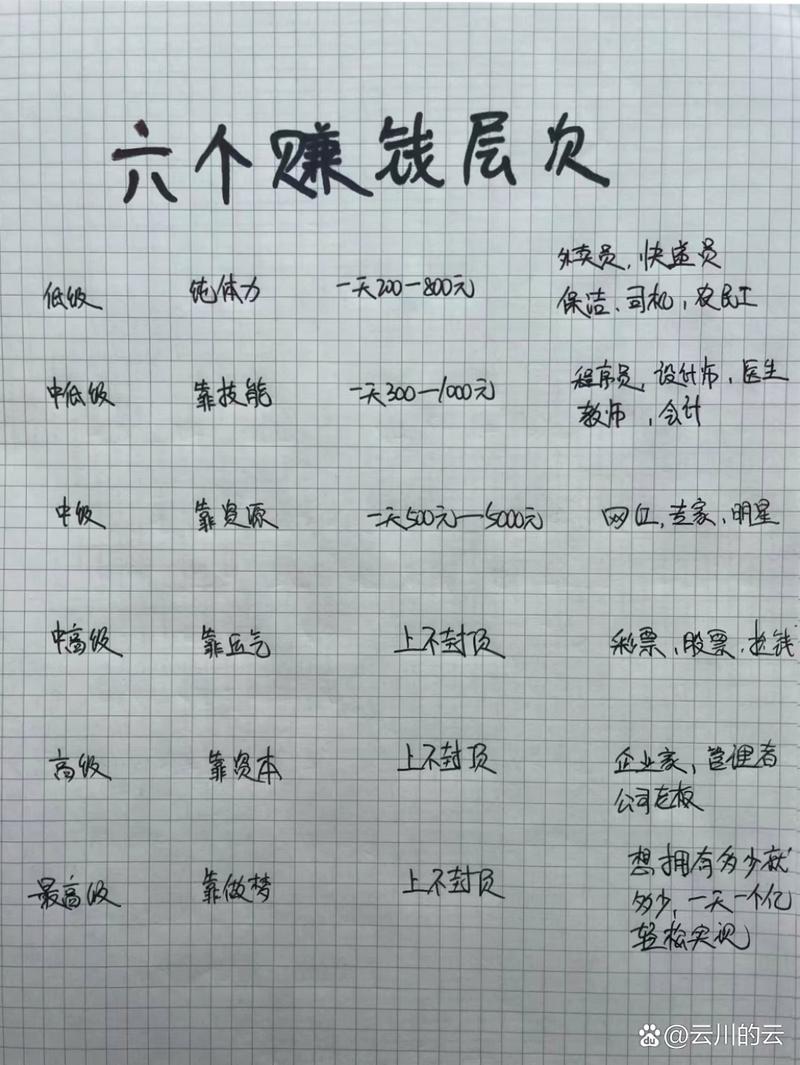 六个赚钱层次
外卖员、快递员
低级 纯体力 一天200一800元 保洁、司机、农民工
中低级 靠技能 一天300一1000元 程序员、设计师、医生
教师、会计
中级 靠资源 一天500元一5000元 网红、专家、明星
中高级 靠运气 上不封顶 彩票、股票、捡钱
高级 靠资本 上不封顶 企业家、管理者
公司老板
最高级 靠做梦 上不封顶 想拥有多少就
多少,一天一个亿
轻松实现
@云川的云